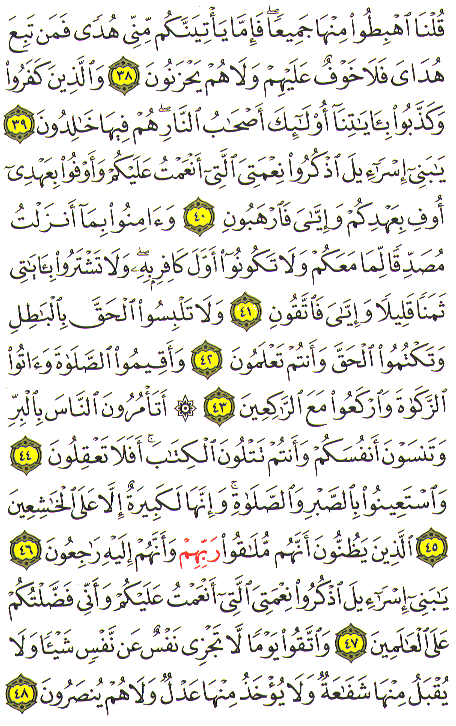 قُلْنَا ٱهْبِطُوا۟ مِنْهَا جَمِيعًاۖ فَإِمَّا يَأْتِيَنَّكُم مِّنِّى هُدًى فَمَن تَبِعَ
هُدَاىَ فَلَا خَوْفٌ عَلَيْهِمْ وَلَا هُمْ يَحْزَنُونَ ٣٨ وَٱلَّذِينَ كَفَرُوا۟
وَكَذَّبُوا۟ بِـَٔايَـٰتِنَآ أُو۟لَـٰٓئِكَ أَصْحَـٰبُ ٱلنَّارِۖ هُمْ فِيهَا خَـٰلِدُونَ ٣٩
يَـٰبَنِىٓ إِسْرَٰٓءِيلَ ٱذْكُرُوا۟ نِعْمَتِىَ ٱلَّتِىٓ أَنْعَمْتُ عَلَيْكُمْ وَأَوْفُوا۟ بِعَهْدِىٓ
أُوفِ بِعَهْدِكُمْ وَإِيَّـٰىَ فَٱرْهَبُونِ ٤٠ وَءَامِنُوا۟ بِمَآ أَنزَلْتُ
مُصَدِّقًا لِّمَا مَعَكُمْ وَلَا تَكُونُوٓا۟ أَوَّلَ كَافِرٍۭ بِهِۦۖ وَلَا تَشْتَرُوا۟ بِـَٔايَـٰتِى
ثَمَنًا قَلِيلًا وَإِيَّـٰىَ فَٱتَّقُونِ ٤١ وَلَا تَلْبِسُوا۟ ٱلْحَقَّ بِٱلْبَـٰطِلِ
وَتَكْتُمُوا۟ ٱلْحَقَّ وَأَنتُمْ تَعْلَمُونَ ٤٢ وَأَقِيمُوا۟ ٱلصَّلَوٰةَ وَءَاتُوا۟
ٱلزَّكَوٰةَ وَٱرْكَعُوا۟ مَعَ ٱلرَّٰكِعِينَ ٤٣ ۞ أَتَأْمُرُونَ ٱلنَّاسَ بِٱلْبِرِّ
وَتَنسَوْنَ أَنفُسَكُمْ وَأَنتُمْ تَتْلُونَ ٱلْكِتَـٰبَۚ أَفَلَا تَعْقِلُونَ ٤٤
وَٱسْتَعِينُوا۟ بِٱلصَّبْرِ وَٱلصَّلَوٰةِۚ وَإِنَّهَا لَكَبِيرَةٌ إِلَّا عَلَى ٱلْخَـٰشِعِينَ
٤٥ ٱلَّذِينَ يَظُنُّونَ أَنَّهُم مُّلَـٰقُوا۟ رَبِّهِمْ وَأَنَّهُمْ إِلَيْهِ رَٰجِعُونَ ٤٦
يَـٰبَنِىٓ إِسْرَٰٓءِيلَ ٱذْكُرُوا۟ نِعْمَتِىَ ٱلَّتِىٓ أَنْعَمْتُ عَلَيْكُمْ وَأَنِّى فَضَّلْتُكُمْ
عَلَى ٱلْعَـٰلَمِينَ ٤٧ وَٱتَّقُوا۟ يَوْمًا لَّا تَجْزِى نَفْسٌ عَن نَّفْسٍ شَيْـًٔا وَلَا
يُقْبَلُ مِنْهَا شَفَـٰعَةٌ وَلَا يُؤْخَذُ مِنْهَا عَدْلٌ وَلَا هُمْ يُنصَرُونَ ٤٨